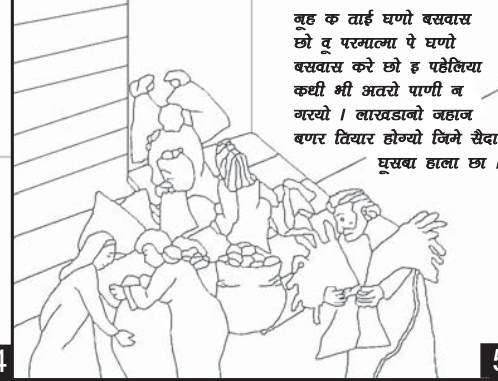 नूह क ताई घणो बसवास
छो वू परमात्मा पे घणो
बसवास करे छो इ पहेलिया
कधी भी अतरो पाणी न
गरयो । लाखडानो जहाज
बणर तियार होग्यो जिमे सैदा
घूसबा हाला छा ।
4
5